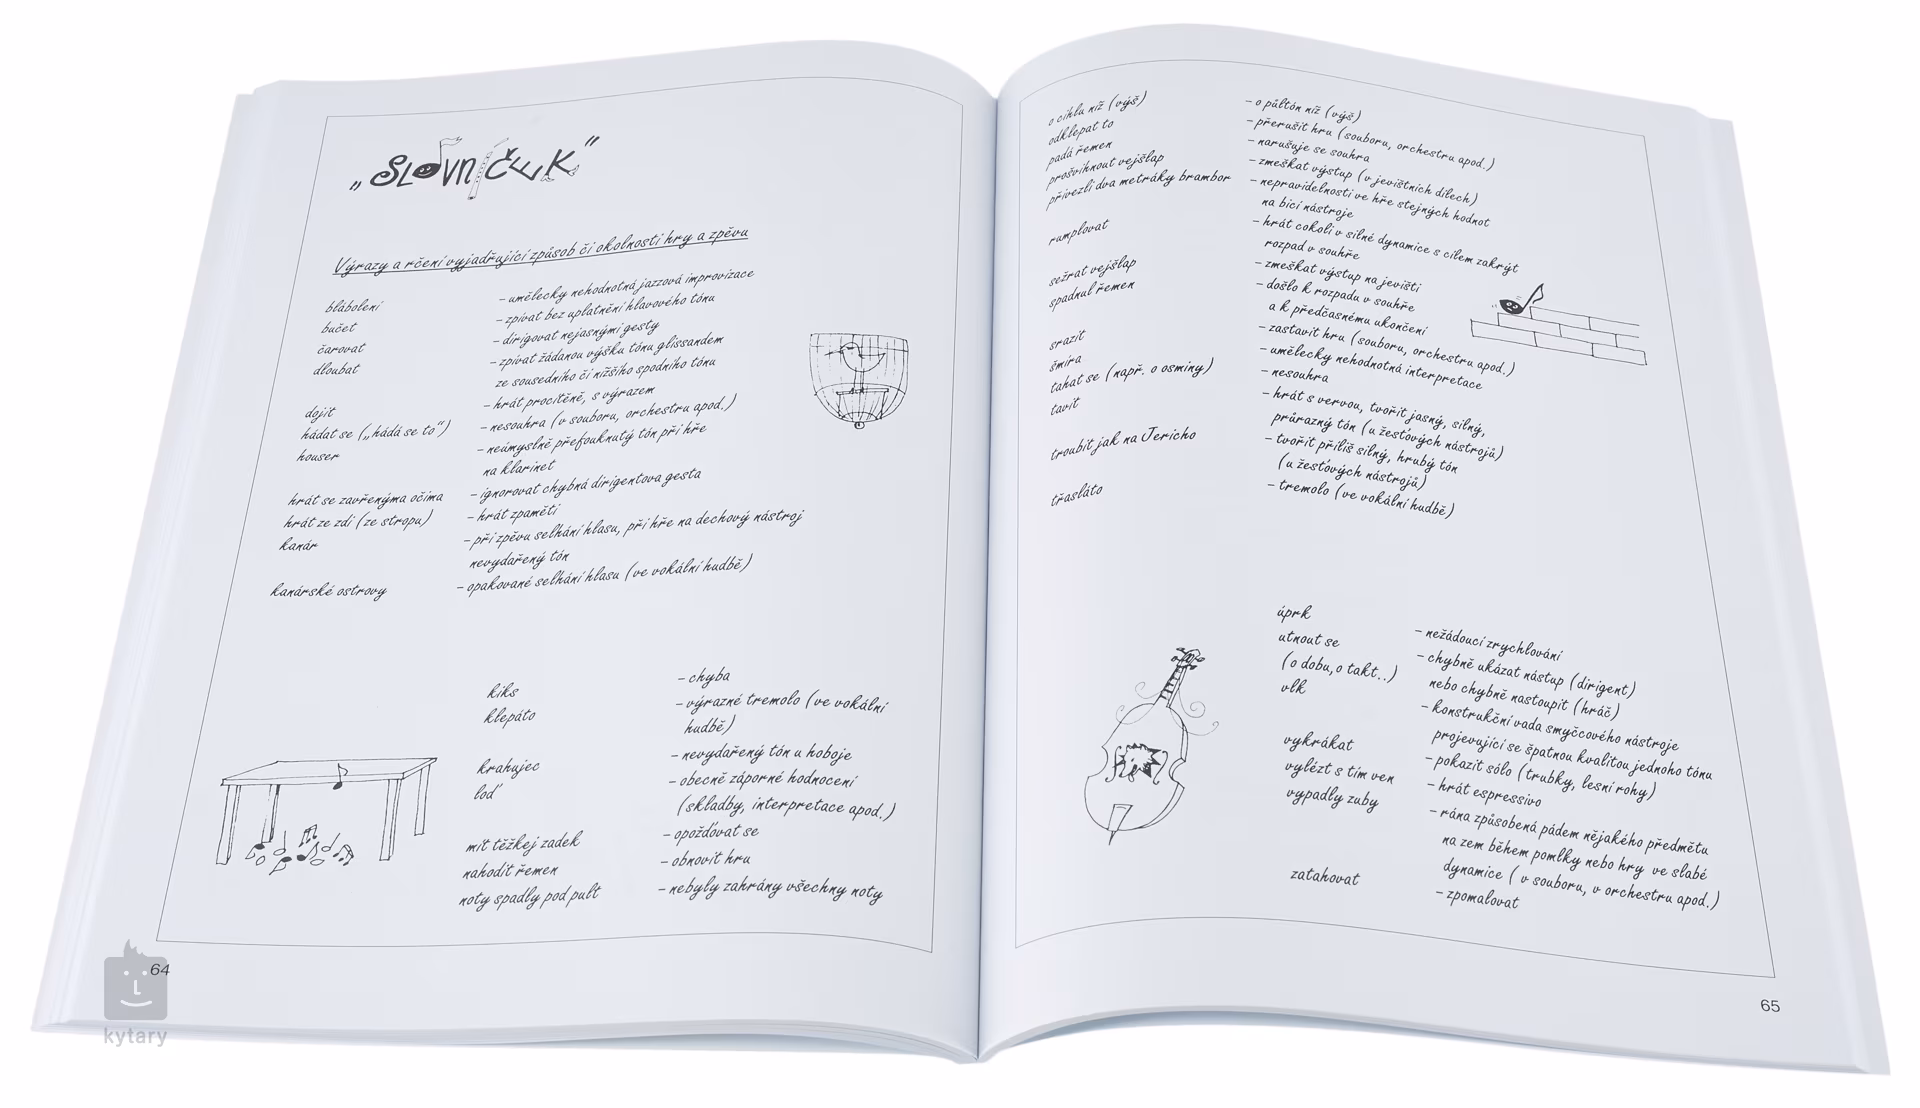 „SLOVNÍČEK"
Výrazy a rčení vyjadřující způsob či okolnosti hry a zpěvu
blábolení – umělecky nehodnotná jazzová improvizace
bučet – zpívat bez uplatnění hlavového tónu
čarovat – dirigovat nejasnými gesty
dloubat – zpívat žádanou výšku tónu glissandem
ze sousedního či nižšího spodního tónu
dojit – hrát procítěně, s výrazem
hádat se („hádá se to") – nesouhra (v souboru, orchestru apod.)
houser – neúmyslně přefouknutý tón při hře
na klarinet
hrát se zavřenýma očima – ignorovat chybná dirigentova gesta
hrát ze zdi (ze stropu) – hrát zpaměti
kanár – při zpěvu selhání hlasu, při hře na dechový nástroj
nevydařený tón
kanárské ostrovy – opakované selhání hlasu (ve vokální hudbě)
kiks – chyba
klepáto – výrazné tremolo (ve vokální
hudbě)
krahujec – nevydařený tón u hoboje
loď – obecně záporné hodnocení
(skladby, interpretace apod.)
mít těžkej zadek – opožďovat se
nahodit řemen – obnovit hru
noty spadly pod pult – nebyly zahrány všechny noty
64
kytary
o cihlu níž (výš) – o půltón níž (výš)
odklepat to – přerušit hru (souboru, orchestru apod.)
padá řemen – narušuje se souhra
prošvihnout vejšlap – zmeškat výstup (v jevištních dílech)
přivezli dva metráky brambor – nepravidelnosti ve hře stejných hodnot
na bicí nástroje
rumplovat – hrát cokoli v silné dynamice s cílem zakrýt
rozpad v souhře
sežrat vejšlap – zmeškat výstup na jevišti
spadnul řemen – došlo k rozpadu v souhře
a k předčasnému ukončení
srazit – zastavit hru (souboru, orchestru apod.)
šmíra – umělecky nehodnotná interpretace
tahat se (např. o osminy) – nesouhra
tavit – hrát s vervou, tvořit jasný, silný,
průrazný tón (u žesťových nástrojů)
troubit jak na Jericho – tvořit příliš silný, hrubý tón
(u žesťových nástrojů)
třasláto – tremolo (ve vokální hudbě)
úprk – nežádoucí zrychlování
utnout se – chybně ukázat nástup (dirigent)
(o dobu, o takt..) nebo chybně nastoupit (hráč)
vlk – konstrukční vada smyčcového nástroje
projevující se špatnou kvalitou jednoho tónu
vykrákat – pokazit sólo (trubky, lesní rohy)
vylézt s tím ven – hrát espressivo
vypadly zuby – rána způsobená pádem nějakého předmětu
na zem během pomlky nebo hry ve slabé
dynamice (v souboru, v orchestru apod.)
zatahovat – zpomalovat
65